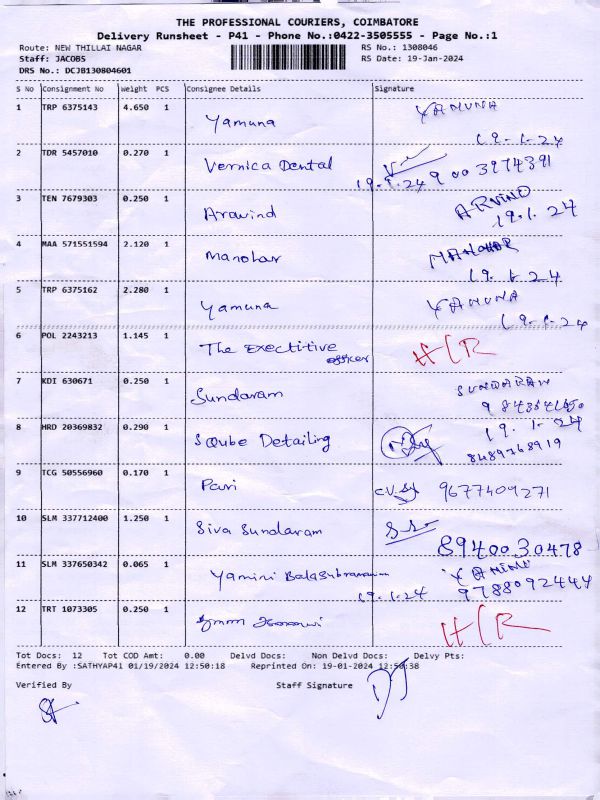 THE PROFESSIONAL COURIERS, COIMBATORE
Delivery Runsheet - P41 - Phone No.:0422-3505555 - Page No.:1
Route: NEW THILLAI NAGAR RS No.: 1308046
Staff: JACOBS RS Date: 19-Jan-2024
DRS No.: DCJB130804601
S No Consignment No Weight PCS Consignee Details Signature
1 TRP 6375143 4.650 1 Yamuna YAMUNA
19-1-24
2 TDR 5457010 0.270 1 Vernica Dental
19.1.24 9003974391
3 TEN 7679303 0.250 1 Aravind ARVIND
19.1.24
4 MAA 571551594 2.120 1 Manohar MANOHAR
19.1.24
5 TRP 6375162 2.280 1 Yamuna YAMUNA
19-1-24
6 POL 2243213 1.145 1 The Exectitive officer
7 KDI 630671 0.250 1 Sundaram SUNDARAM
8 HRD 20369832 0.290 1 SQube Detailing 19.1.24
8489768919
9 TCG 50556960 0.170 1 Pari 9677409271
10 SLM 337712400 1.250 1 Siva Sundaram
8940030478
11 SLM 337650342 0.065 1 Yamini Balasubramanium YAMINI
19.1.24 9788092444
12 TRT 1073305 0.250 1
Tot Docs: 12 Tot COD Amt: 0.00 Delvd Docs: Non Delvd Docs: Delvy Pts:
Entered By :SATHYAP41 01/19/2024 12:50:18 Reprinted On: 19-01-2024 12:50:38
Verified By Staff Signature